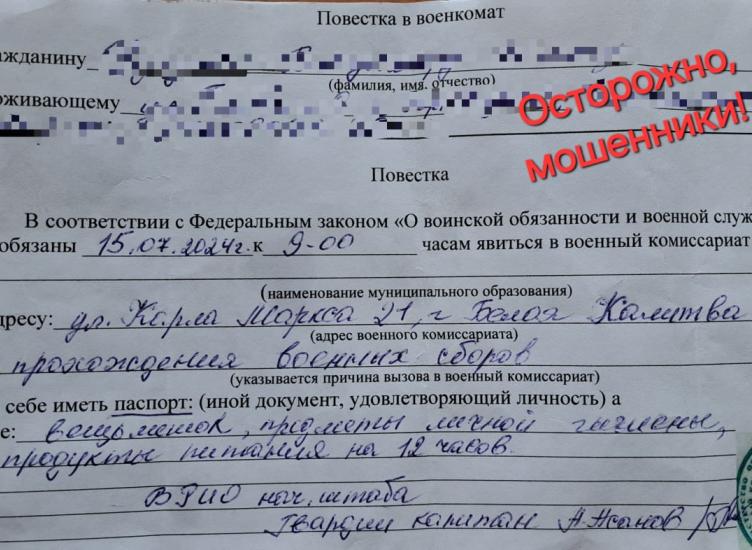 Повестка в военкомат
ажданину
(фамилия, имя, отчество)
Осторожно,
мошенники!
оживающему
Повестка
В соответствии с Федеральным законом «О воинской обязанности и военной служ
обязаны 15.07.2024г. к 9-00 часам явиться в военный комиссариат
(наименование муниципального образования)
дресу: ул. Карла Маркса 21, г Белая Калитва
(адрес военного комиссариата)
прохождения военных сборов
(указывается причина вызова в военный комиссариат)
себе иметь паспорт: (иной документ, удовлетворяющий личность) а
е: вещьмешок, предметы личной гигиены,
продукты питания на 12 часов.
ВРИО нач. штаба
Гвардии капитан А.Жанов